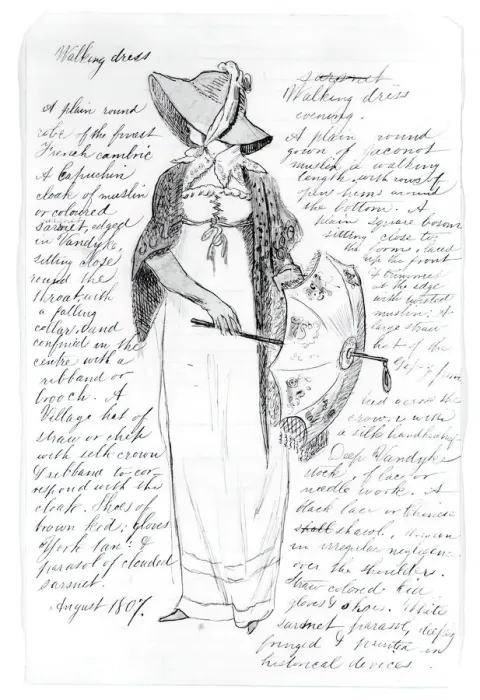 Walking dress
A plain round
robe of the finest
French cambric
A Capuchin
cloak of muslin
or coloured
sarsnet, edged
in Vandyke,
sitting close
round the
throat with
a falling
collar, and
confined in the
centre with a
ribband or
brooch. A
Village hat of
straw or chip
with silk crown
& ribband to cor-
respond with the
cloak. Shoes of
brown kid; gloves
York tan: &
parasol of clouded
sarsnet.
August 1807.
sarsnet
Walking dress
evening.
A plain round
gown of Jaconot
muslin, a walking
length, with rows of
open hems around
the bottom. A
plain square bosom
sitting close to
the form, laced
up the front
& trimmed
at the edge
with
muslin: A
large straw
hat of the
tied across the
crown with
a silk handkerchief
Deep Vandyke
of lace or
needle work. A
black lace or Chinese
shall shawl, thrown
in irregular negligence
over the shoulders.
Straw colored kid
gloves & shoes. White
sarsnet parasol, deeply
fringed & painted in
historical devices.